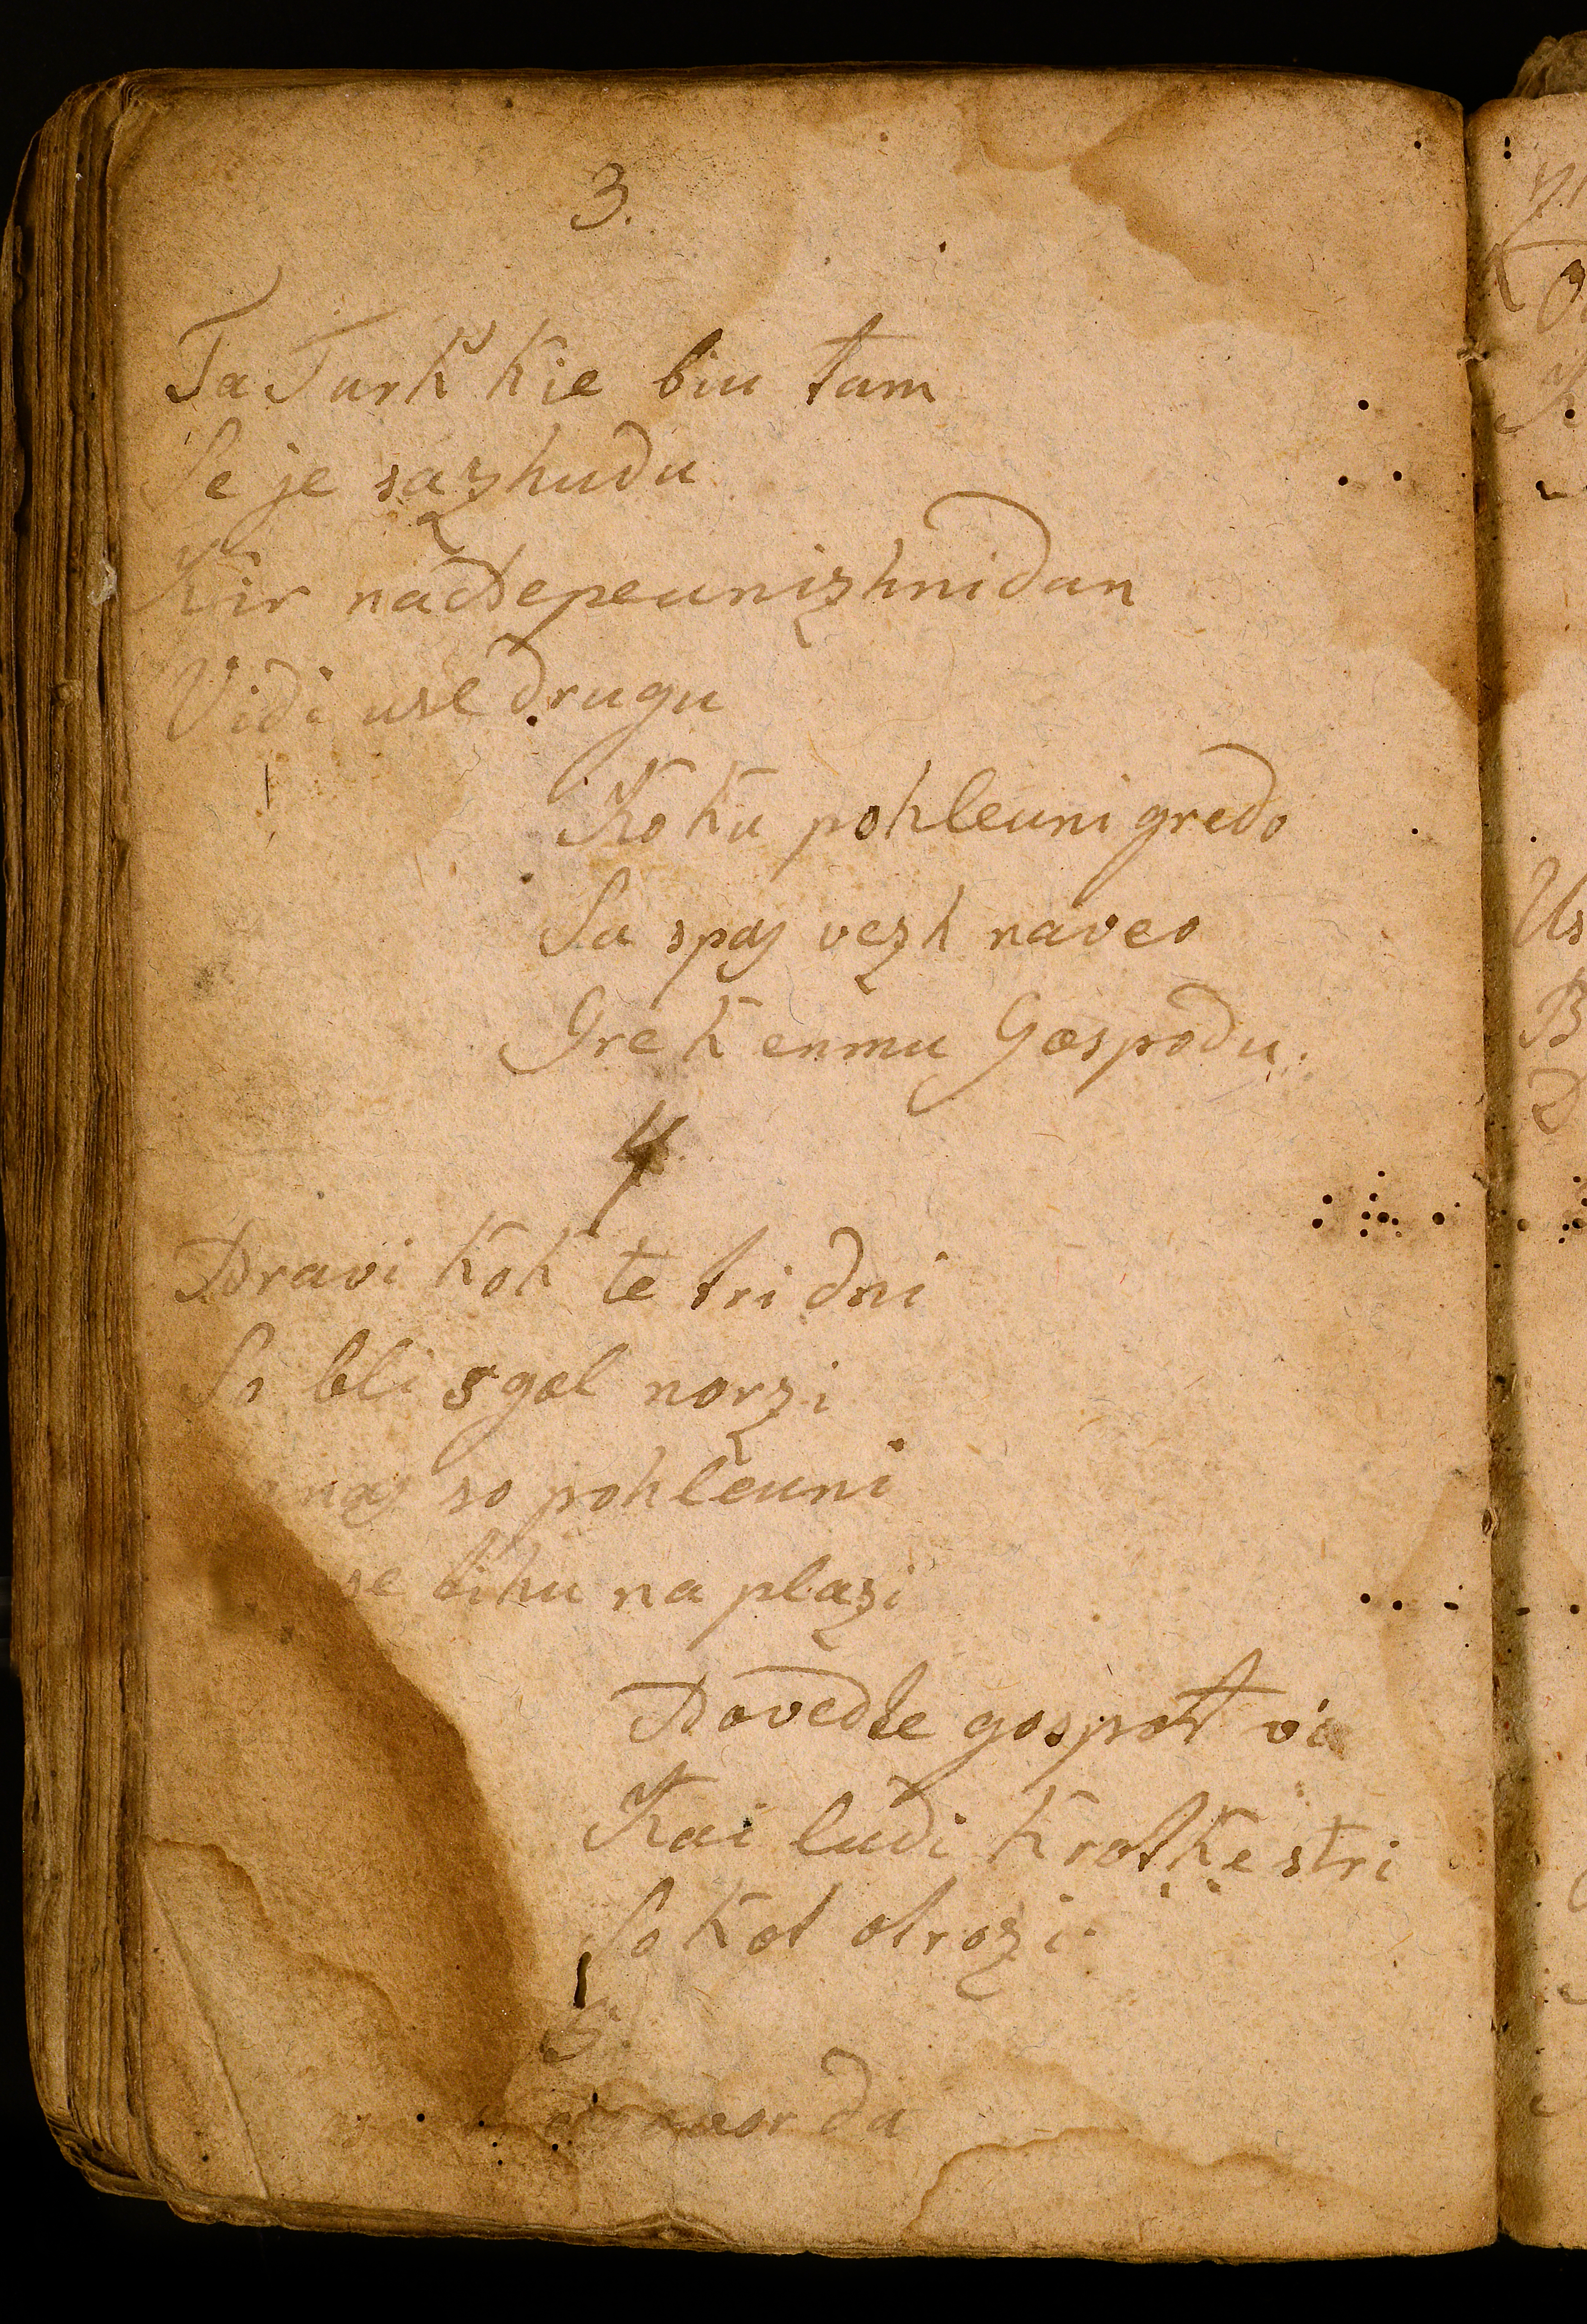 3.
Ta Turk kie biu tam
Se je sazhudu
Kir nadtepeunizhnidan
Vidi use drugu
Koku pohleuni gredo
Su spaj vezh naveo
Gre k enmu Gospodu.
4
Pravi kok te tri dni
So bli sgol norzi
so pohleuni
se bihu na plazi
Povedte gospot
Kai ludi krotke stri
So kot otrozi.
5.
da